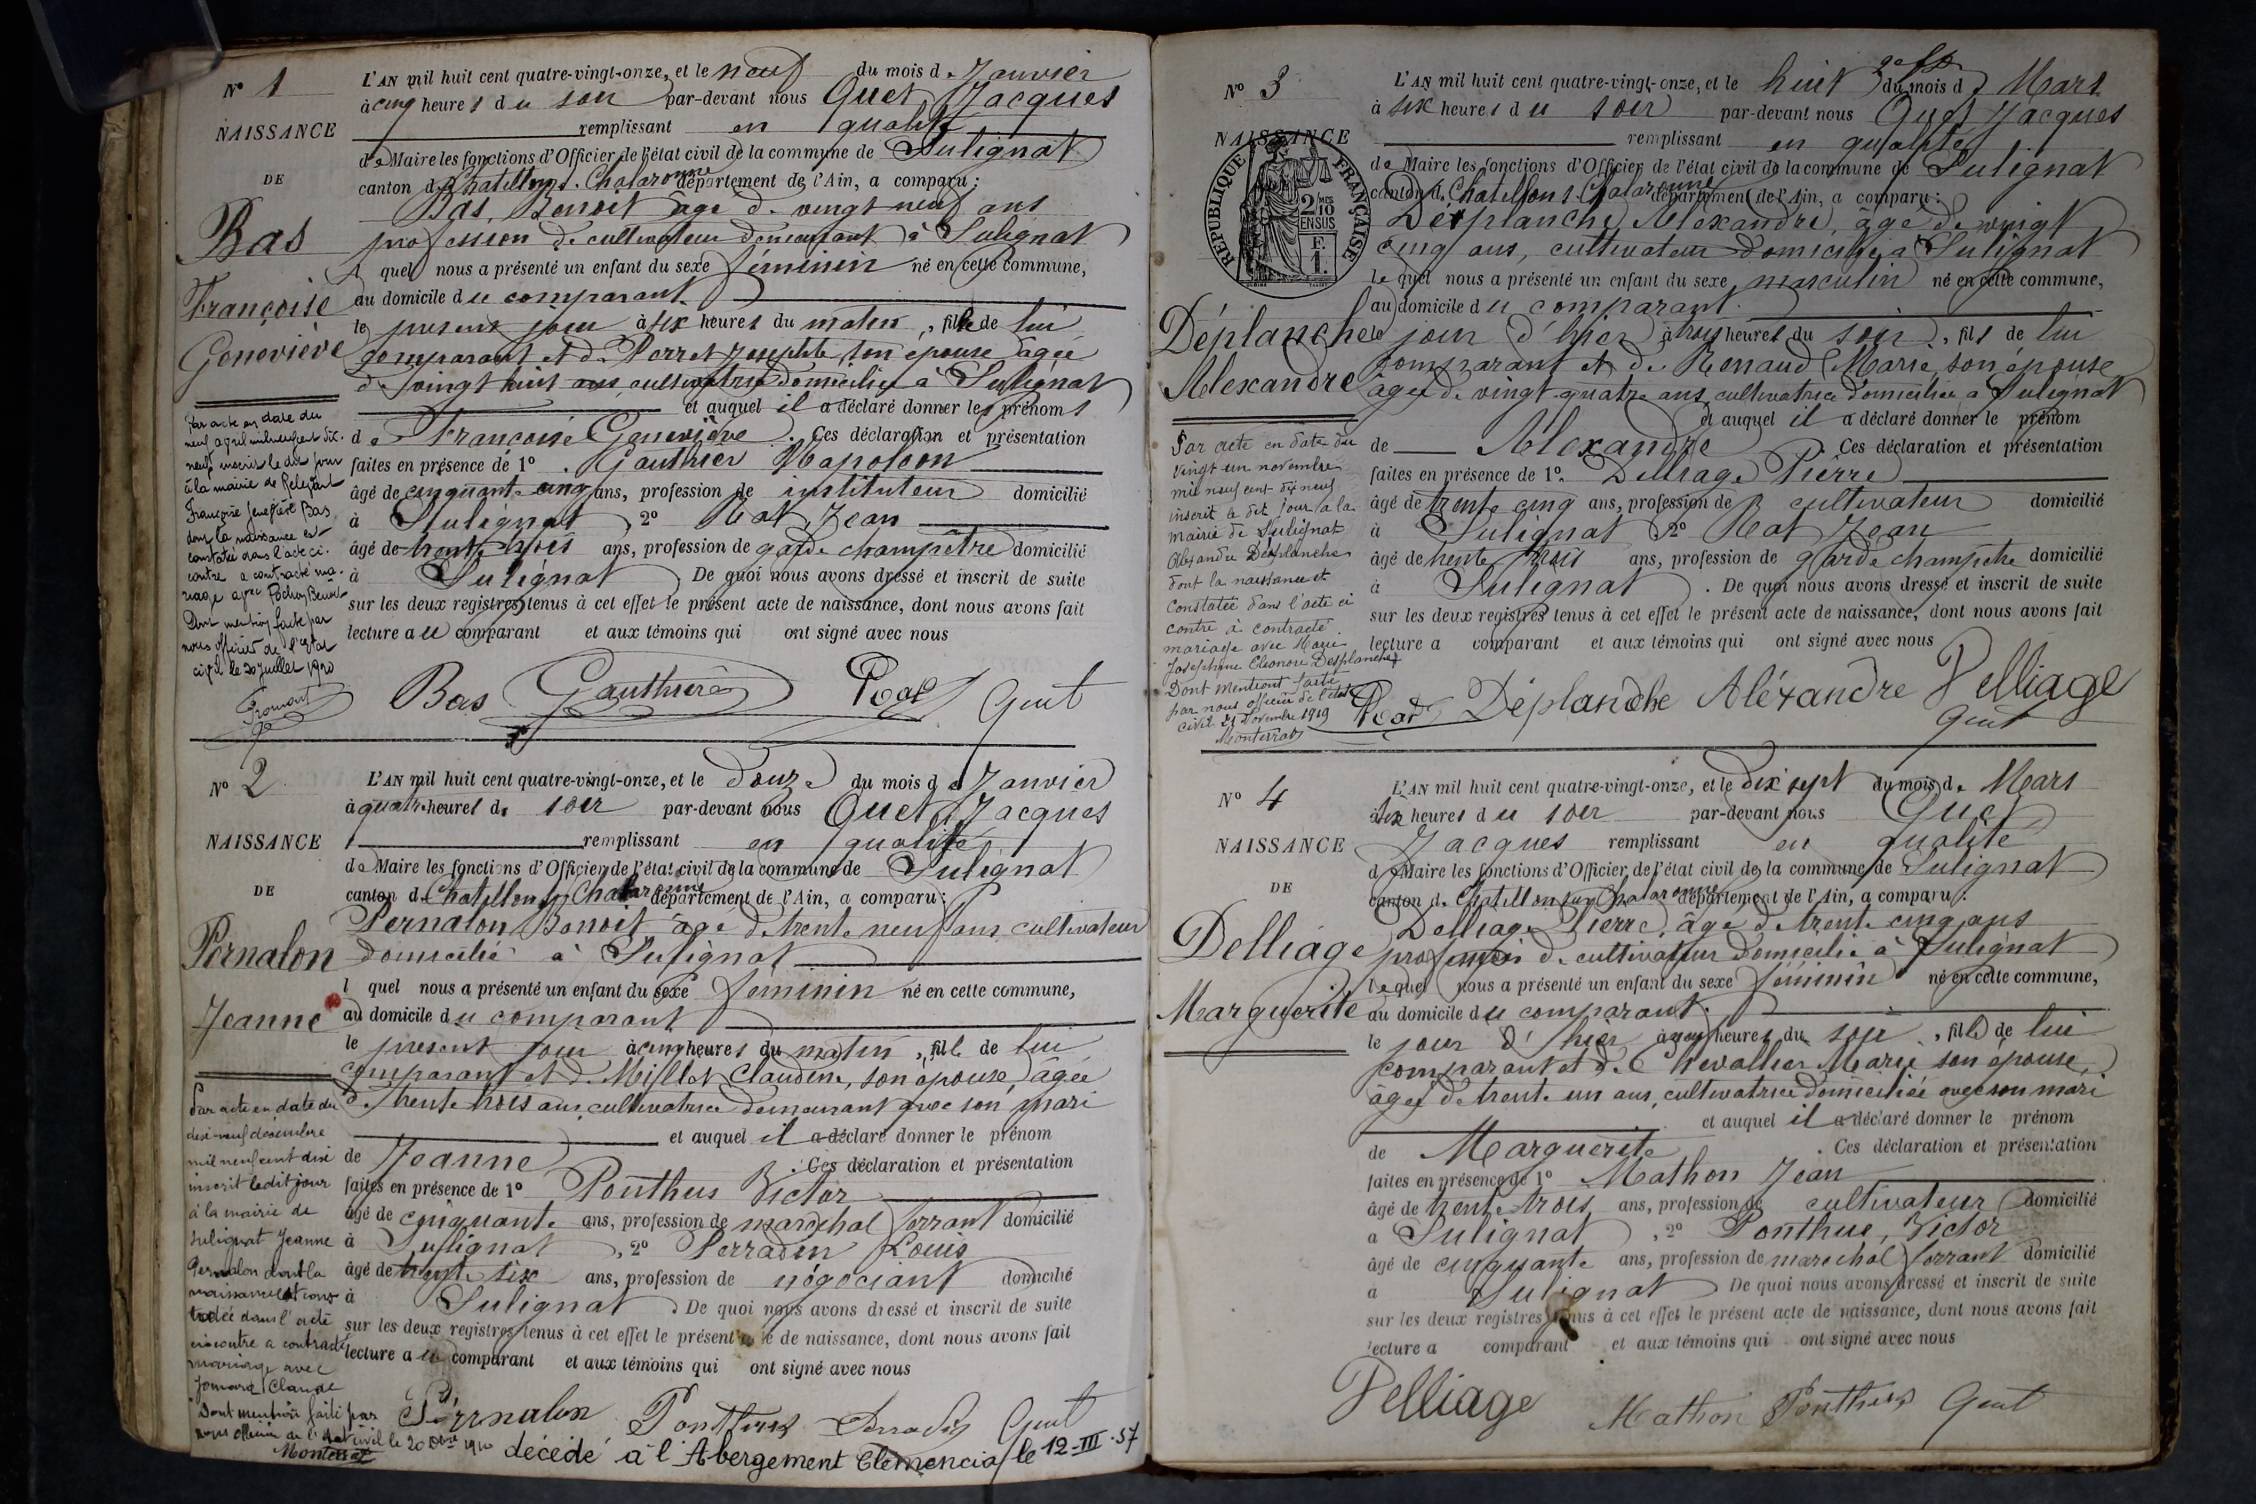 N° 1
NAISSANCE
DE
Bas
Françoise
Geneviève
Par acte en date du
neuf avril mil neuf cent dix-
neuf inscrit le dit jour
à la mairie de Relevant
Françoise Geneviève Bas
dont la naissance est
constatée dans l'acte ci-
contre a contracté ma-
riage avec Pochon Benoit
Dont mention faite par
nous officier de l'Etat
civil le 20 Juillet 1920
Fromont
L'AN mil huit cent quatre-vingt-onze, et le neuf du mois de Janvier
à cinq heures du soir par-devant nous Quet Jacques
remplissant en qualité
de Maire les fonctions d'Officier de l'état civil de la commune de Sulignat
canton de Chatillon s. Chalaronne département de l'Ain, a comparu :
Bas, Benoit âgé de vingt neuf ans
profession de cultivateur demeurant à Sulignat
l quel nous a présenté un enfant du sexe féminin né en cette commune,
au domicile du comparant
le présent jour à six heures du matin, fille de lui
comparant et de Perret Josephte son épouse âgée
de vingt huit ans, cultivatrice domiciliée à Sulignat
et auquel il a déclaré donner les prénoms
de Françoise Geneviève. Ces déclaration et présentation
faites en présence de 1° Gauthier Napoléon
âgé de cinquante cinq ans, profession de instituteur domicilié
à Sulignat, 2° Roat Jean
âgé de trente trois ans, profession de garde champêtre domicilié
à Sulignat. De quoi nous avons dressé et inscrit de suite
sur les deux registres tenus à cet effet le présent acte de naissance, dont nous avons fait
lecture au comparant et aux témoins qui ont signé avec nous
Bas Gauthier Roat Quet
N° 2
NAISSANCE
DE
Pernalon
Jeanne
Par acte en date du
dix-neuf décembre
mil neuf cent dix
inscrit ledit jour
à la mairie de
Sulignat Jeanne
Pernalon dont la
naissance est cons
tatée dans l'acte
ci-contre a contracté
mariage avec
Jomard Claude
Dont mention faite par
nous officier de l'état civil le 20 Xbre 1910
Monterrat
L'AN mil huit cent quatre-vingt-onze, et le douze du mois de Janvier
à quatre heures du soir par-devant nous Quet Jacques
remplissant en qualité
de Maire les fonctions d'Officier de l'état civil de la commune de Sulignat
canton de Chatillon s. Chalaronne département de l'Ain, a comparu :
Pernalon Benoit âgé de trente neuf ans cultivateur
domicilié à Sulignat
l quel nous a présenté un enfant du sexe féminin né en cette commune,
au domicile du comparant
le présent jour à cinq heures du matin, fille de lui
comparant et de Millet Claudine, son épouse, âgée
de trente trois ans, cultivatrice demeurant avec son mari
et auquel il a déclaré donner le prénom
de Jeanne. Ces déclaration et présentation
faites en présence de 1° Ponthus Victor
âgé de cinquante ans, profession de maréchal ferrant domicilié
à Sulignat, 2° Perradin Louis
âgé de trente six ans, profession de négociant domicilié
à Sulignat. De quoi nous avons dressé et inscrit de suite
sur les deux registres tenus à cet effet le présent acte de naissance, dont nous avons fait
lecture au comparant et aux témoins qui ont signé avec nous
Pernalon Ponthus Perradin Quet
décédé à l'Abergement Clémenciat le 12-III-57
N° 3
NAISSANCE
RÉPUBLIQUE FRANÇAISE
2/10 EN SUS
F.
1.
Déplanche
Alexandre
Par acte en date du
vingt un novembre
mil neuf cent dix neuf
inscrit le dit jour à la
mairie de Sulignat
Alexandre Desplanche
dont la naissance est
constatée dans l'acte ci
contre à contracté
mariage avec Marie
Josephine Eléonore Desplanche
Dont mention faite
par nous officier de l'état
civil 21 Novembre 1919
Monterrat
L'AN mil huit cent quatre-vingt-onze, et le huit du mois de Mars
à six heures du soir par-devant nous Quet Jacques
remplissant en qualité
de Maire les fonctions d'Officier de l'état civil de la commune de Sulignat
canton de Chatillon s Chalaronne département de l'Ain, a comparu :
Desplanche, Alexandre, âgé de vingt
cinq ans, cultivateur domicilié à Sulignat
lequel nous a présenté un enfant du sexe masculin né en cette commune,
au domicile du comparant
le jour d'hier à trois heures du soir, fils de lui
comparant et de Renaud Marie, son épouse
âgée de vingt-quatre ans, cultivatrice domiciliée à Sulignat
et auquel il a déclaré donner le prénom
de Alexandre Ces déclaration et présentation
faites en présence de 1° Delliage Pierre
âgé de trente cinq ans, profession de cultivateur domicilié
à Sulignat 2° Roat Jean
âgé de trente trois ans, profession de garde champêtre domicilié
à Sulignat. De quoi nous avons dressé et inscrit de suite
sur les deux registres tenus à cet effet le présent acte de naissance, dont nous avons fait
lecture a comparant et aux témoins qui ont signé avec nous
Roat Déplanche Aléxandre Delliage
Quet
N° 4
NAISSANCE
DE
Delliage
Marguerite
L'AN mil huit cent quatre-vingt-onze, et le dix sept du mois de Mars
à six heures du soir par-devant nous Quet
Jacques remplissant en qualité
de Maire les fonctions d'Officier de l'état civil de la commune de Sulignat
canton de Chatillon sur Chalaronne département de l'Ain, a comparu :
Delliage Pierre, âgé de trente cinq ans
profession de cultivateur domicilié à Sulignat
lequel nous a présenté un enfant du sexe féminin né en cette commune,
au domicile du comparant
le jour d'hier à heures du soir, fille de lui
comparant et de Chevallier Marie son épouse,
âgée de trente un ans, cultivatrice domiciliée avec son mari
et auquel il a déclaré donner le prénom
de Marguerite. Ces déclaration et présentation
faites en présence de 1° Mathon Jean
âgé de trente trois ans, profession de cultivateur domicilié
à Sulignat, 2° Ponthus, Victor
âgé de cinquante ans, profession de maréchal ferrant domicilié
à Sulignat De quoi nous avons dressé et inscrit de suite
sur les deux registres tenus à cet effet le présent acte de naissance, dont nous avons fait
lecture a comparant et aux témoins qui ont signé avec nous
Delliage Mathon Ponthus Quet